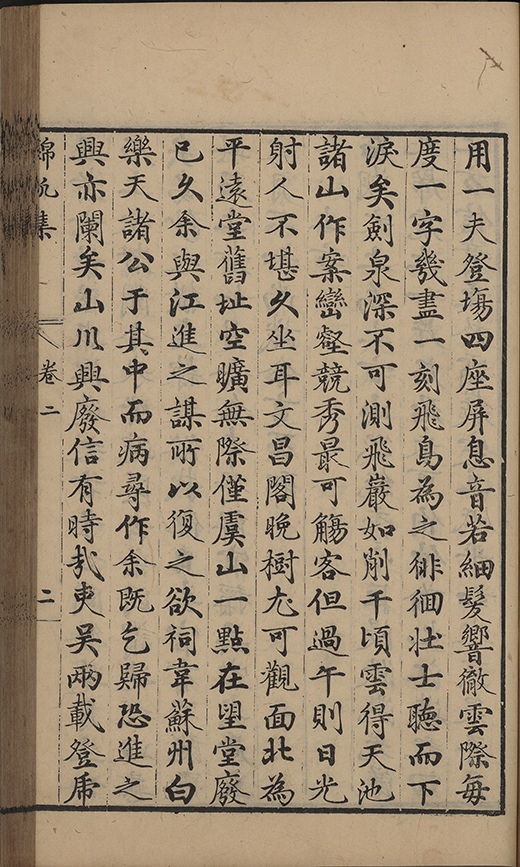 用一夫登塲四座屏息音若細髮響徹雲際每
度一字幾盡一刻飛鳥為之徘徊壯士聽而下
淚矣劍泉深不可測飛巖如削千頃雲得天池
諸山作案巒壑競秀最可觴客但過午則日光
射人不堪久坐耳文昌閣晚樹尤可觀面北為
平遠堂舊址空曠無際僅虞山一點在望堂廢
已久余與江進之謀所以復之欲祠韋蘇州白
樂天諸公于其中而病尋作余既乞歸恐進之
興亦闌矣山川興廢信有時哉吏吳兩載登虎
錦帆集 卷二 二